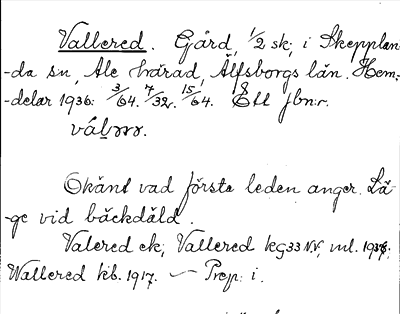 Vallered. Gård, 1/2 sk; i Skepplan-
-da sn, Ale härad, Älfsborgs län. Hem-
-delar 1936: 3/64. 7/32. 15/64. Ett jbn:r.
Okänt vad första leden anger. Lä-
-ge vid bäckdäld.
Valered ek; Vallered kg 33 NV, ml. 1936;
Wallered kb. 1917. — Prep: i.